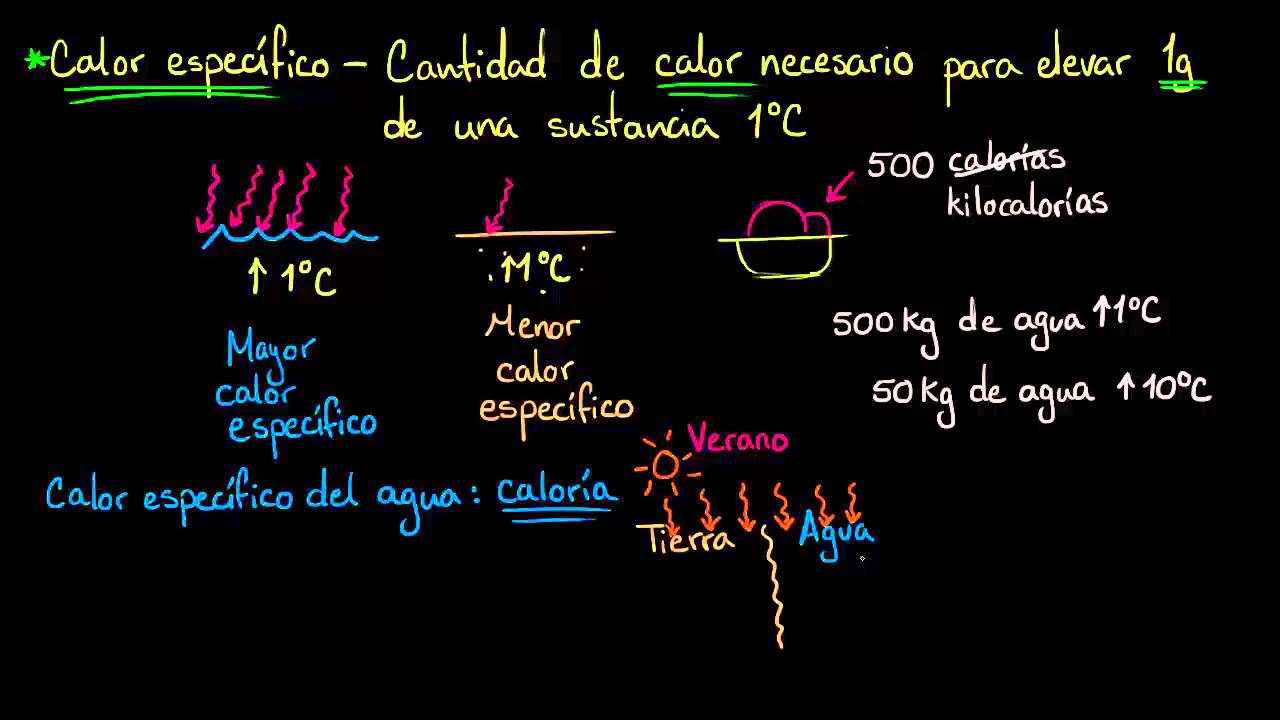 *Calor específico – Cantidad de calor necesario para elevar 1g
de una sustancia 1°C
500 calorías
kilocalorías
↑ 1°C
↑1°C
Mayor
calor
específico
Menor
calor
específico
500 kg de agua ↑1°C
50 kg de agua ↑10°C
Calor específico del agua: caloría
Verano
Tierra
Agua